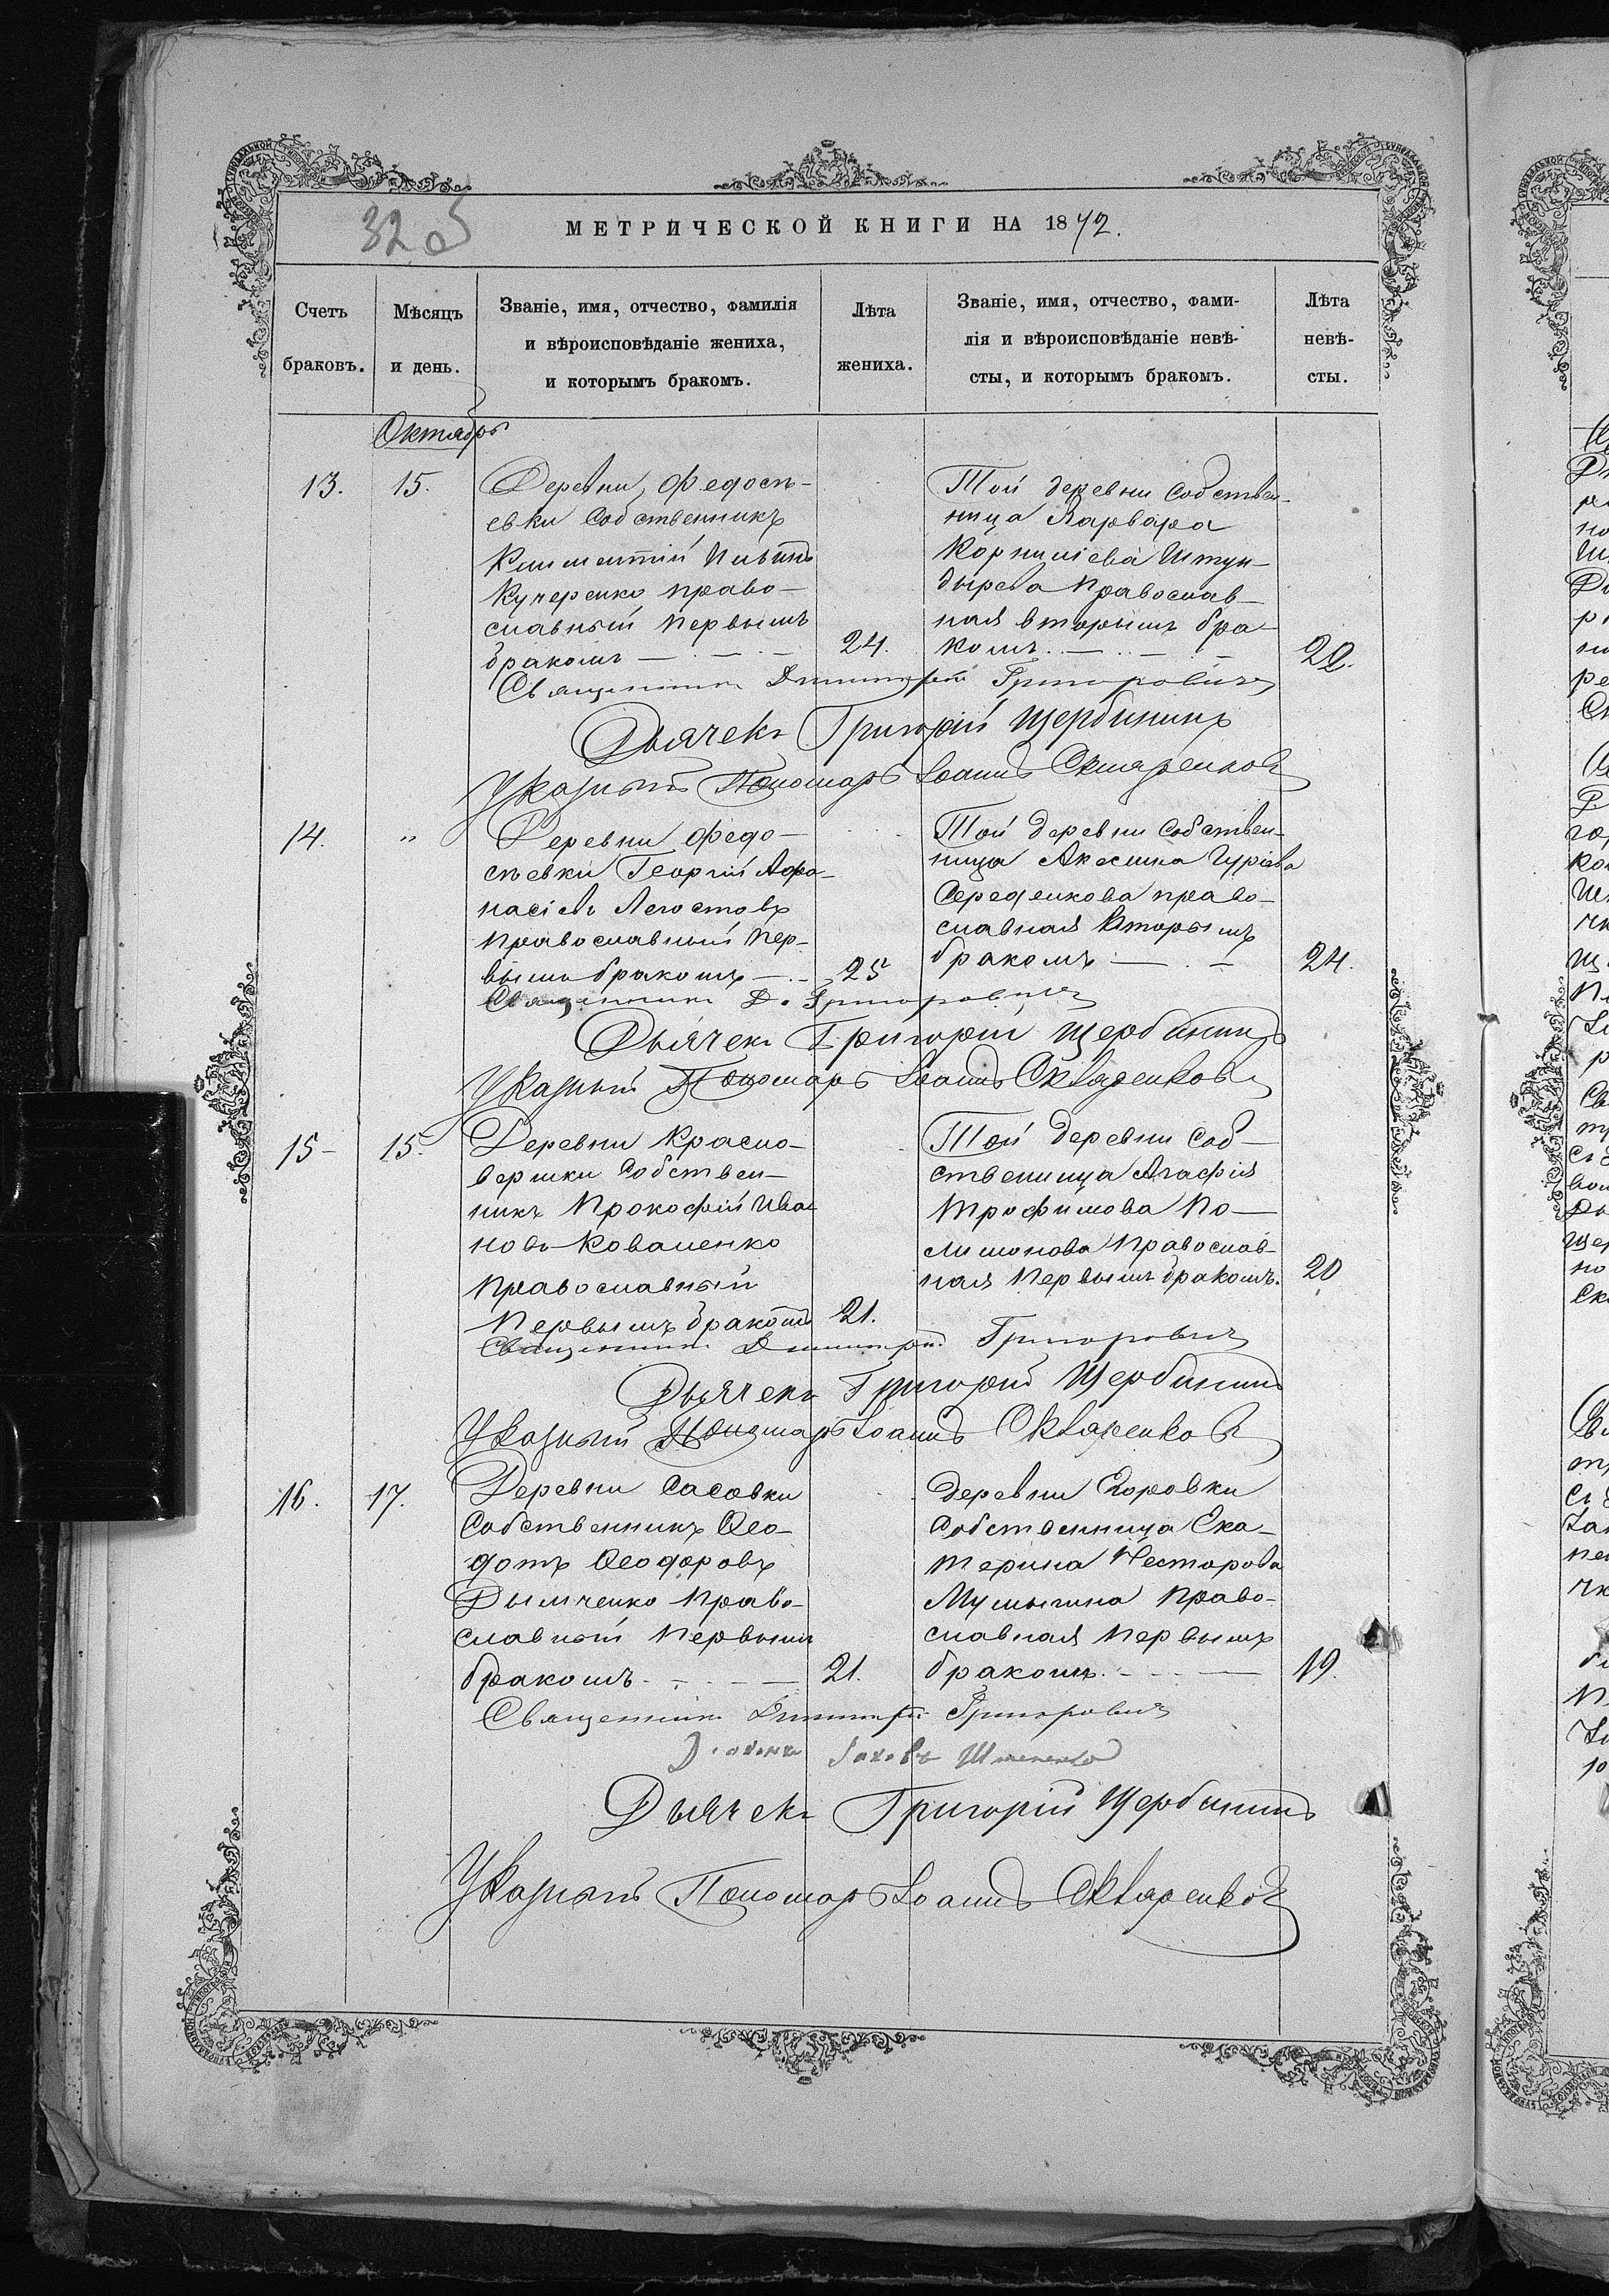 32
МЕТРИЧЕСКОЙ КНИГИ НА 1872.
Счетъ браковъ.
Мѣсяцъ и день.
Званіе, имя, отчество, фамилія
и вѣроисповѣданіе жениха,
и которымъ бракомъ.
Лѣта жениха.
Званіе, имя, отчество, фами-
лія и вѣроисповѣданіе невѣ-
сты, и которымъ бракомъ.
Лѣта невѣ-
сты.
Октябрь
13. 15.
Деревни Федосѣ-
евки Собственникъ
Климентій
Кучеренко право-
славный первымъ
бракомъ 24.
Той деревни собствен-
ница Варвара
Корниліева Штун-
дырева Православ-
ная вторымъ бра-
комъ 22.
Священникъ Димитрій Григоровичъ
Дьячекъ Григорій Щербининъ
Указный Пономарь Іоаннъ Скляренковъ
14. "
Деревни Федо-
сѣевки Георгій Афа-
насіевъ Легостовъ
православный пер-
вымъ бракомъ 25
Той деревни собствен-
ница Акилина Гуріева
Середенкова право-
славная вторымъ
бракомъ 24.
Священникъ Д. Григоровичъ
Дьячекъ Григорій Щербининъ
Указный Пономарь Іоаннъ Скляренковъ
15 15.
Деревни Красно-
вершки Собствен-
никъ Прокофій Ива
новъ Коваленко
православный
первымъ бракомъ 21.
Той деревни Соб-
ственница Агафія
Трофимова По-
лимонова Православ-
ная первымъ бракомъ. 20
Священникъ Димитрій Григоровичъ
Дьячекъ Григорій Щербининъ
Указный Пономарь Іоаннъ Скляренковъ
16. 17.
Деревни Сасовки
Собственникъ Ѳео-
дотъ Ѳеодоровъ
Дымченко Право-
славный первымъ
бракомъ 21.
деревни Егоровки
Собственница Ека-
терина Несторова
Мулыгина Право-
славная первымъ
бракомъ. 19.
Священникъ Димитрій Григоровичъ
Діаконъ Іаковъ
Дьячекъ Григорій Щербининъ
Указный Пономарь Іоаннъ Скляренковъ